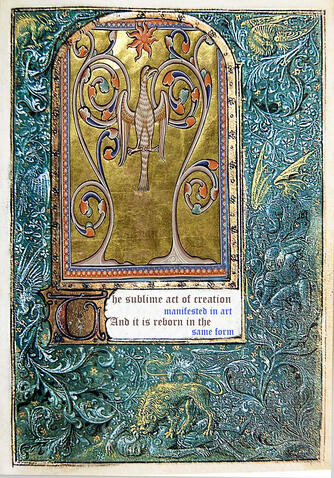 The sublime act of creation
manifested in art
And it is reborn in the
same form